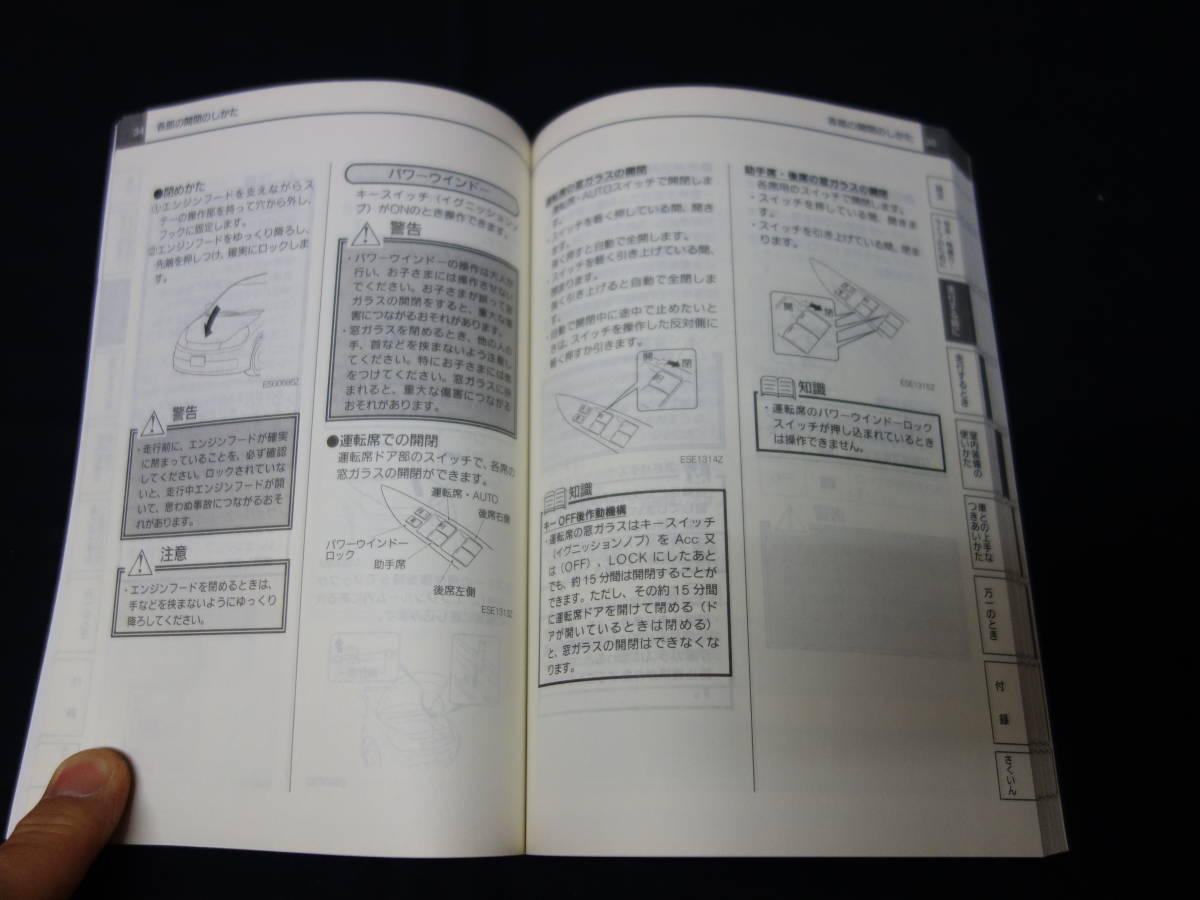 34
各部の開閉のしかた
●閉めかた
①エンジンフードを支えながらス
テーの操作部を持って穴から外し、
フックに固定します。
②エンジンフードをゆっくり降ろし、
先端を押しつけ、確実にロックしま
す。
ES0068SZ
警告
・走行前に、エンジンフードが確実
に閉まっていることを、必ず確認
してください。ロックされていな
いと、走行中エンジンフードが開
いて、思わぬ事故につながるおそ
れがあります。
注意
・エンジンフードを閉めるときは、
手などを挟まないようにゆっくり
降ろしてください。
パワーウインドー
キースイッチ（イグニッションノ
ブ）がONのとき操作できます。
警告
・パワーウインドーの操作は大人が
行い、お子さまには操作させない
でください。お子さまが誤って
ガラスの開閉をすると、重大な傷
害につながるおそれがあります。
・窓ガラスを閉めるとき、他の人の
手、首などを挟まないよう注意し
てください。特にお子さまには
をつけてください。窓ガラスに挟
まれると、重大な傷害につながる
おそれがあります。
●運転席での開閉
運転席ドア部のスイッチで、各席の
窓ガラスの開閉ができます。
運転席・AUTO
後席右側
パワーウインドー
ロック
助手席
後席左側
ESE1313Z
各部の開閉のしかた
運転席の窓ガラスの開閉
運転席・AUTOスイッチで開閉しま
す。
・スイッチを軽く押している間、開き
ます。
強く押すと自動で全開します。
・スイッチを軽く引き上げている間、
閉まります。
強く引き上げると自動で全閉しま
す。
・自動で開閉中に途中で止めたいと
きは、スイッチを操作した反対側に
軽く押すか引きます。
開
閉
ESE1314Z
知識
キーOFF後作動機構
・運転席の窓ガラスはキースイッチ
（イグニッションノブ）を Acc 又
は（OFF）、LOCK にしたあと
でも、約15分間は開閉することが
できます。ただし、その約15分間
に運転席ドアを開けて閉める（ド
アが開いているときは閉める）
と、窓ガラスの開閉はできなくな
ります。
助手席・後席の窓ガラスの開閉
各席用のスイッチで開閉します。
・スイッチを押している間、開きま
す。
・スイッチを引き上げている間、閉ま
ります。
開
閉
ESE1315Z
知識
・運転席のパワーウインドーロック
スイッチが押し込まれているとき
は操作できません。
走行するとき
室内装備の
使いかた
車との上手な
つきあいかた
万一のとき
付録
さくいん